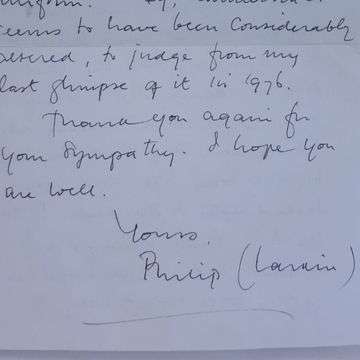 seems to have been considerably
altered, to judge from my
last glimpse of it in 1976.
Thank you again for
your sympathy. I hope you
are well.
Yours,
Philip (Larkin)